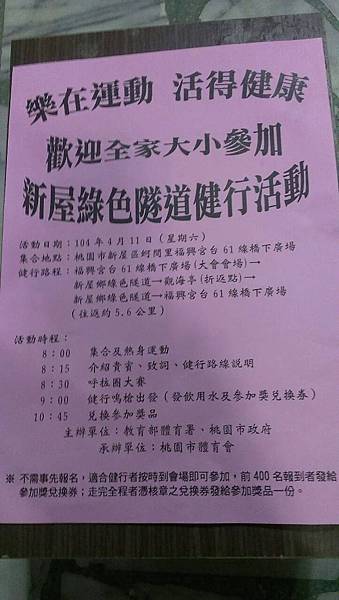 樂在運動 活得健康
歡迎全家大小參加
新屋綠色隧道健行活動
活動日期：104年4月11日（星期六）
集合地點：桃園市新屋區蚵間里福興宮台61線橋下廣場
健行路程：福興宮台61線橋下廣場(大會會場)→
新屋鄉綠色隧道→觀海亭(折返點)→
新屋鄉綠色隧道→福興宮台61線橋下廣場
(往返約5.6公里)
活動時程：
8：00 集合及熱身運動
8：15 介紹貴賓、致詞、健行路線說明
8：30 呼拉圈大賽
9：00 健行鳴槍出發（發飲用水及參加獎兌換券）
10：45 兌換參加獎品
主辦單位：教育部體育署、桃園市政府
承辦單位：桃園市體育會
※ 不需事先報名，適合健行者按時到會場即可參加，前400名報到者發給
參加獎兌換券；走完全程者憑核章之兌換券發給參加獎品一份。